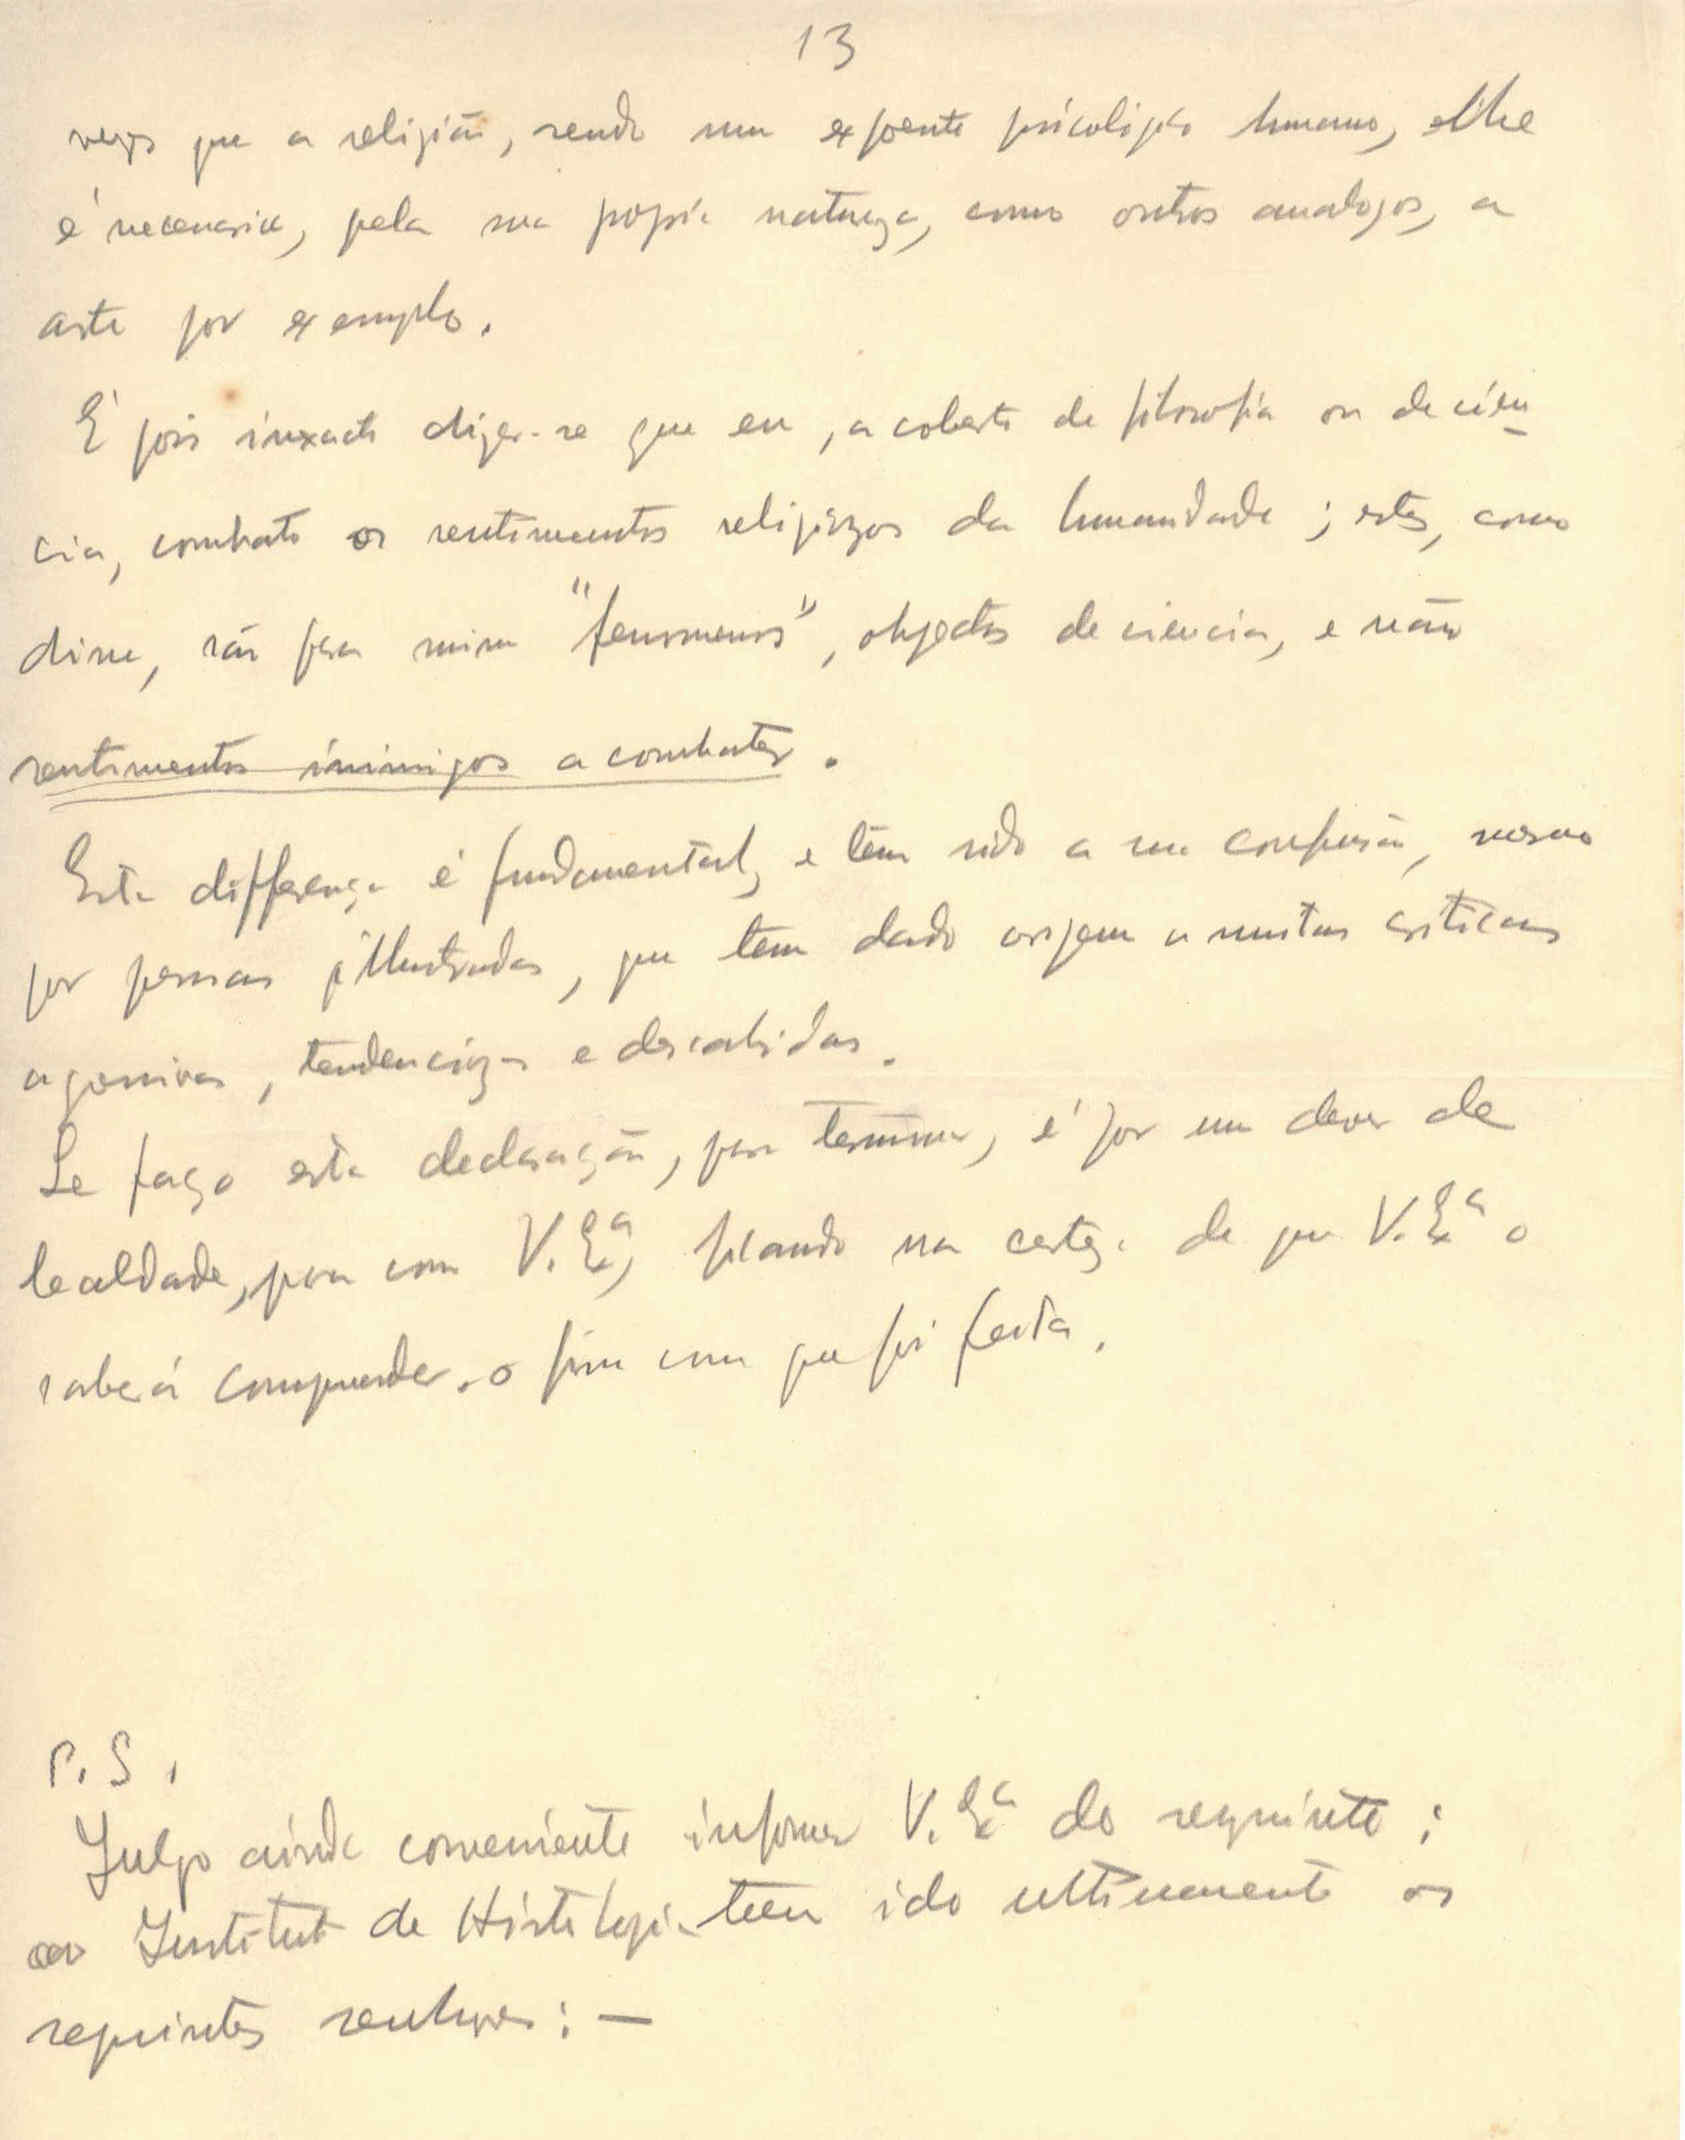 13
vezes que a religião, sendo um expoente psicologico humano, elhe
é necessaria, pela sua propria natureza, como outros analogos, a
arte por exemplo.
É pois inexacto dizer-se que eu, a coberto de filosofia ou de ciên-
cia, combato os sentimentos religiozos da humanidade; estes, como
disse, são para mim "fenomenos", objectos de ciencia, e não
sentimentos inimigos a combater.
Esta differença é fundamental, e têm sido a sua confusão, mesmo
por pessoas illustradas, que tem dado origem a muitas criticas
agressivas, tendenciozas e descabidas.
Se faço esta declaração, para terminar, é por um dever de
lealdade, para com V. Exª, ficando na certeza de que V. Exª o
saberá comprender. o fim com que foi feita.
P. S.
Julgo ainda conveniente informar V. Exª do seguinte:
ao Instituto de Histologia teem ido ultimamente os
seguintes senhores: —